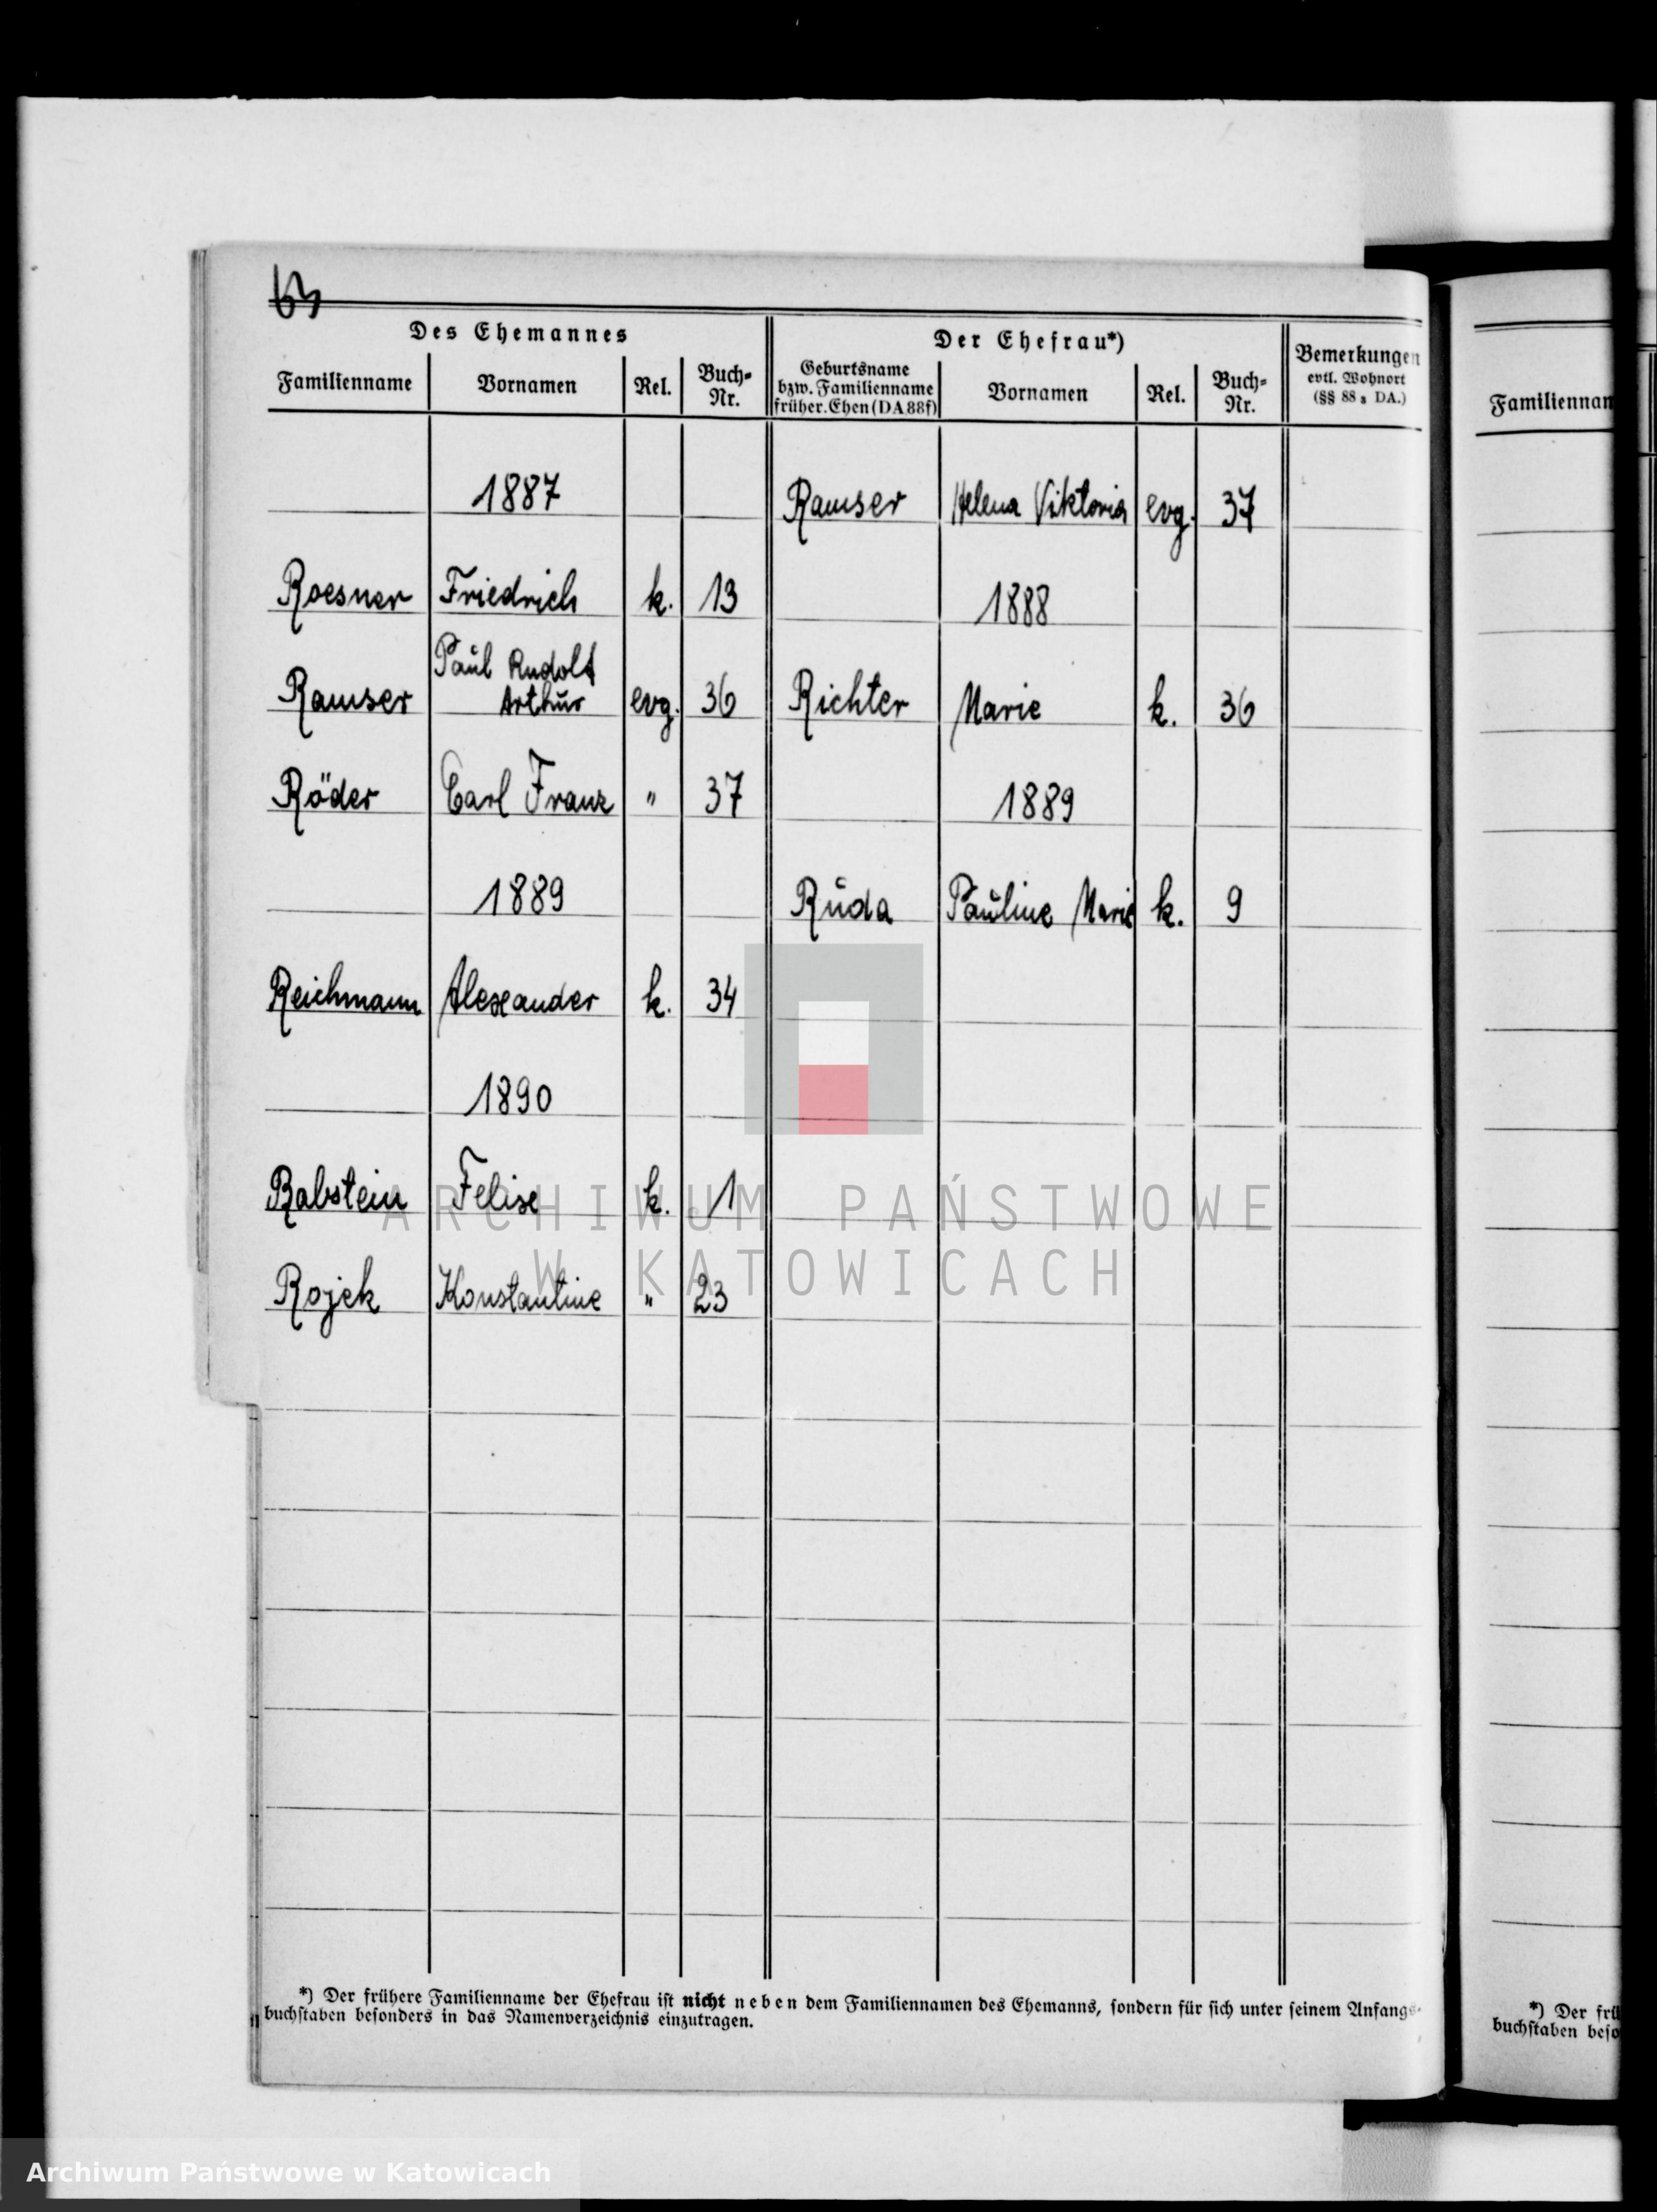 63
Des Ehemannes | Der Ehefrau*) | Bemerkungen evtl. Wohnort (§§ 88 a DA.)
Familienname | Vornamen | Rel. | Buch=Nr. | Geburtsname bzw. Familienname früher. Ehen (DA 88f) | Vornamen | Rel. | Buch=Nr.
1887 | Ramser | Helena Viktoria | evg. | 37
Roesner | Friedrich | k. | 13 | 1888
Ramser | Paul Rudolf Arthur | evg. | 36 | Richter | Marie | k. | 36
Röder | Carl Franz | " | 37 | 1889
1889 | Ruda | Pauline Marie | k. | 9
Reichmann | Alexander | k. | 34
1890
Rabstein | Felix | k. | 1
Rojek | Konstantine | " | 23
*) Der frühere Familienname der Ehefrau ist nicht neben dem Familiennamen des Ehemanns, sondern für sich unter seinem Anfangs=
buchstaben besonders in das Namenverzeichnis einzutragen.
Familiennam
*) Der frü
buchstaben beso
ARCHIWUM PAŃSTWOWE
W KATOWICACH
Archiwum Państwowe w Katowicach